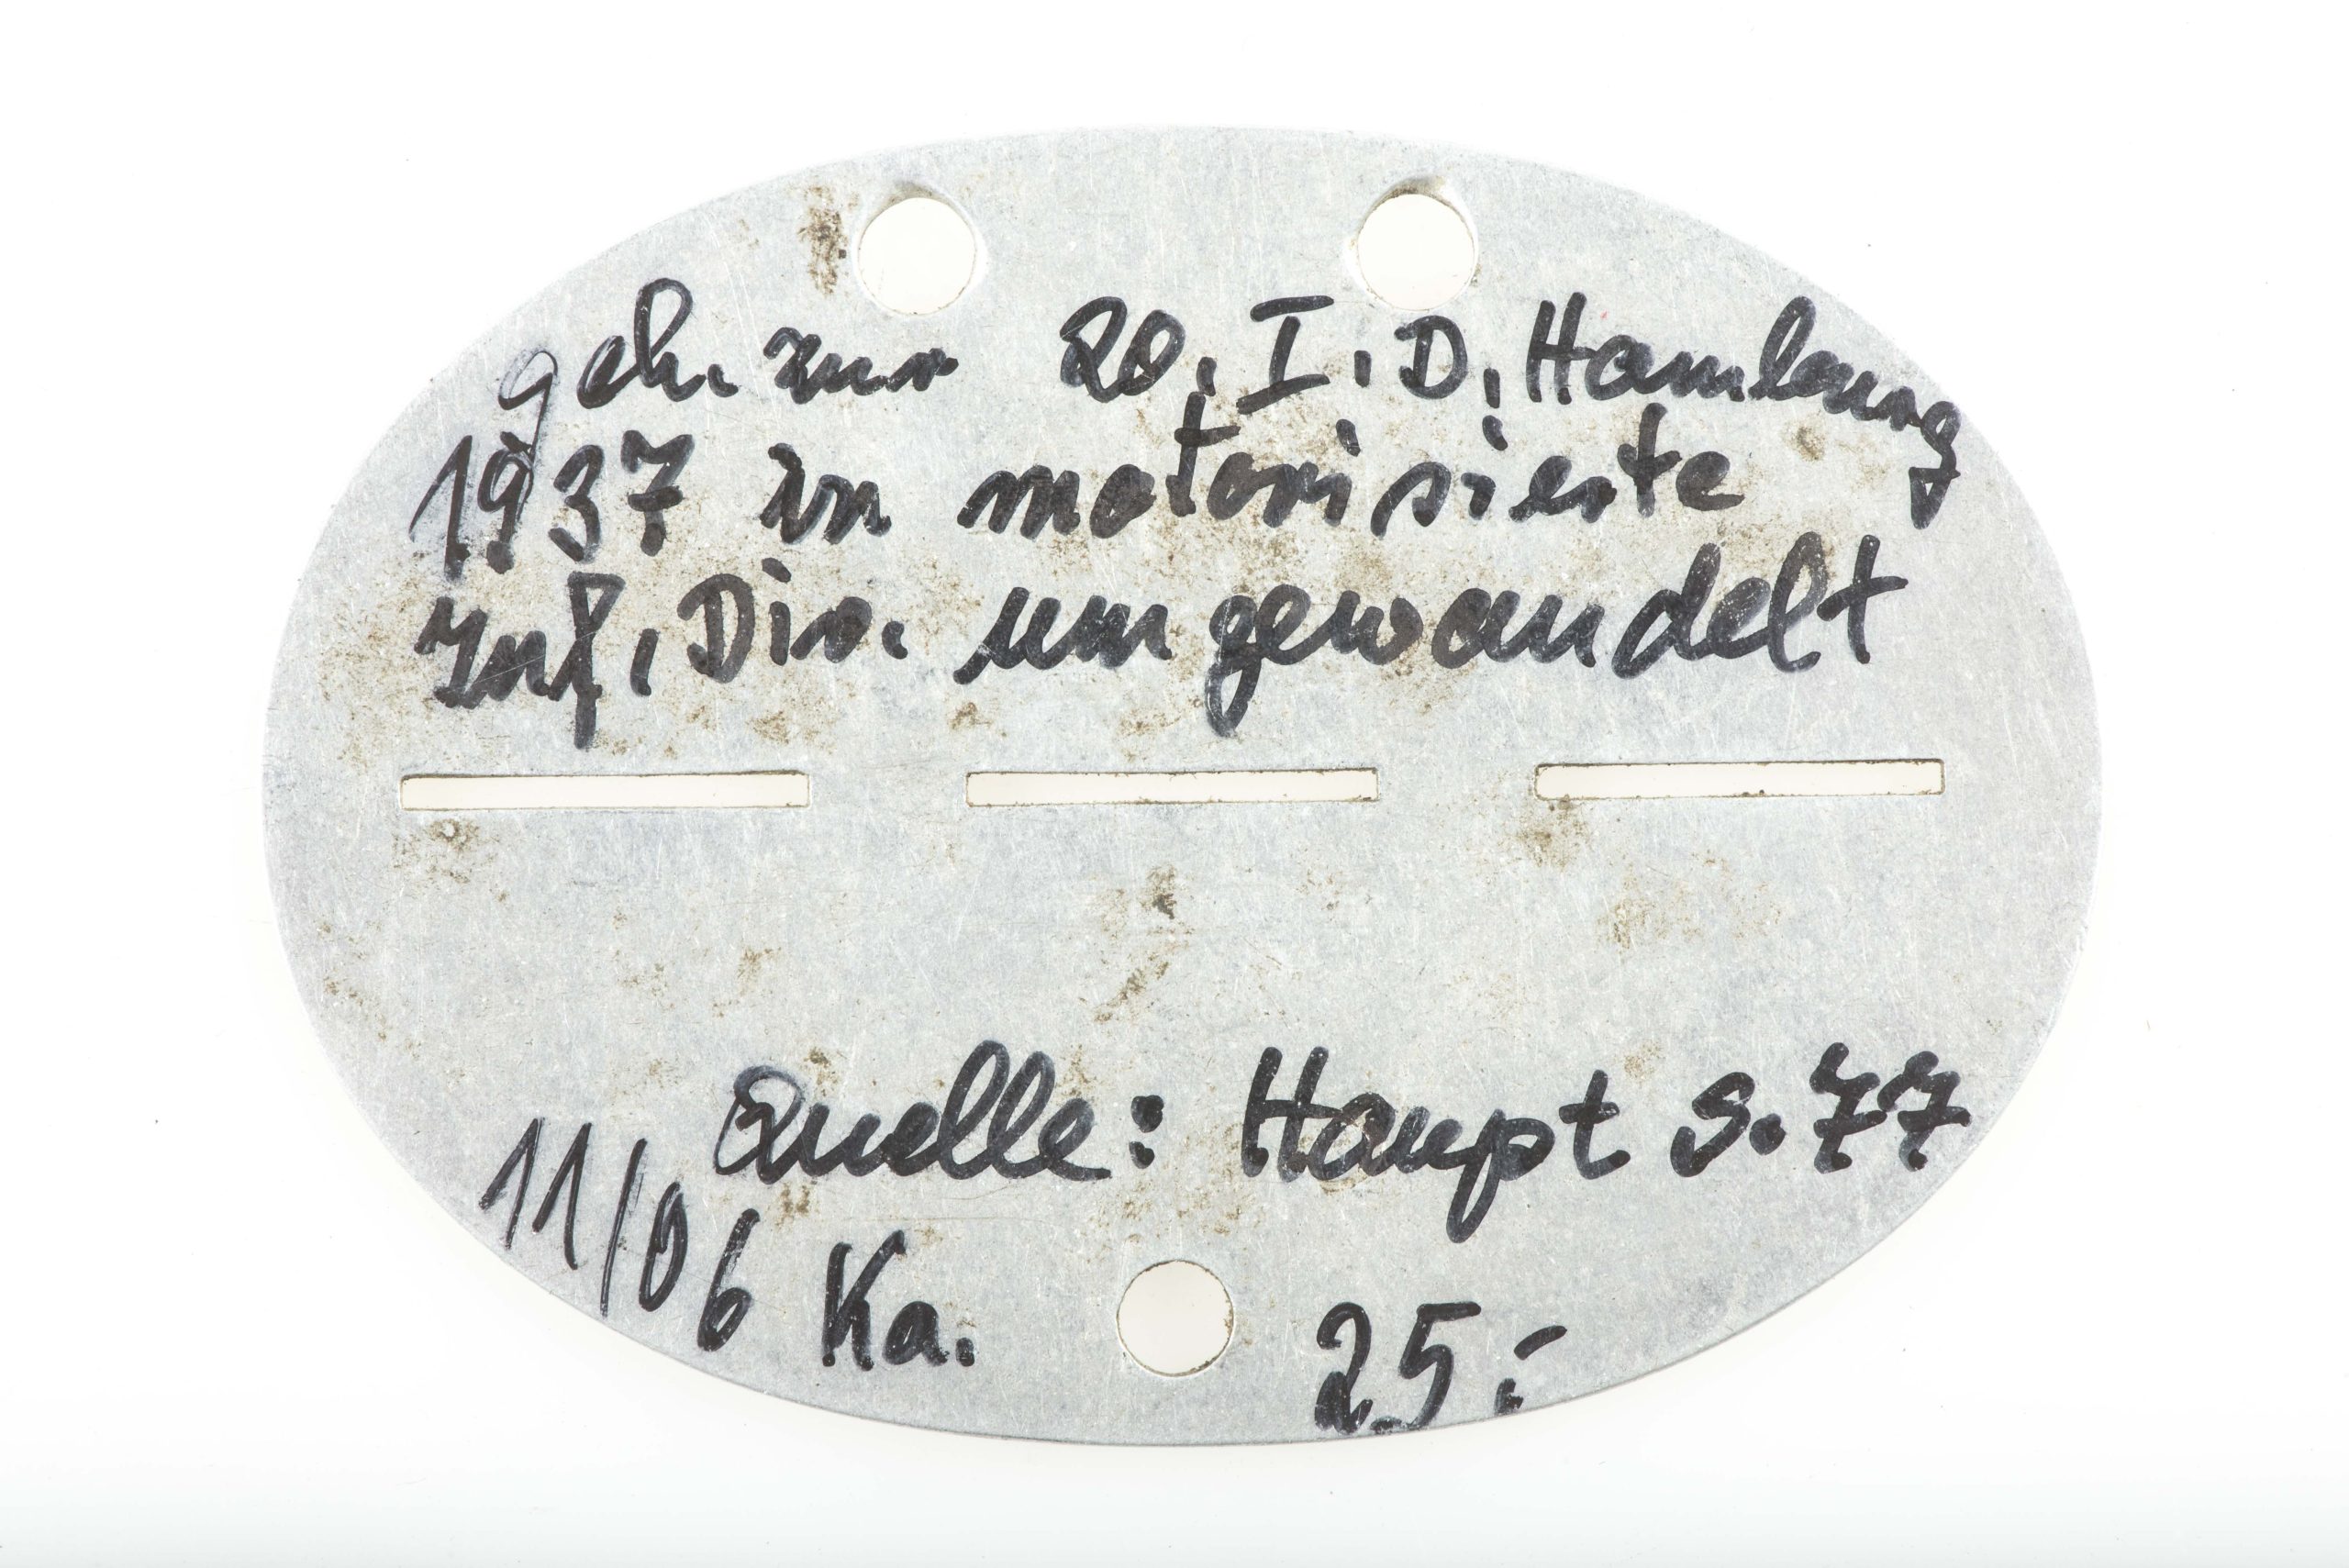 geh. zur 20. I. D. Hamburg
1937 in motorisierte
Inf. Div. umgewandelt
Quelle: Haupt S. 77
11/06 Ka.
25.-